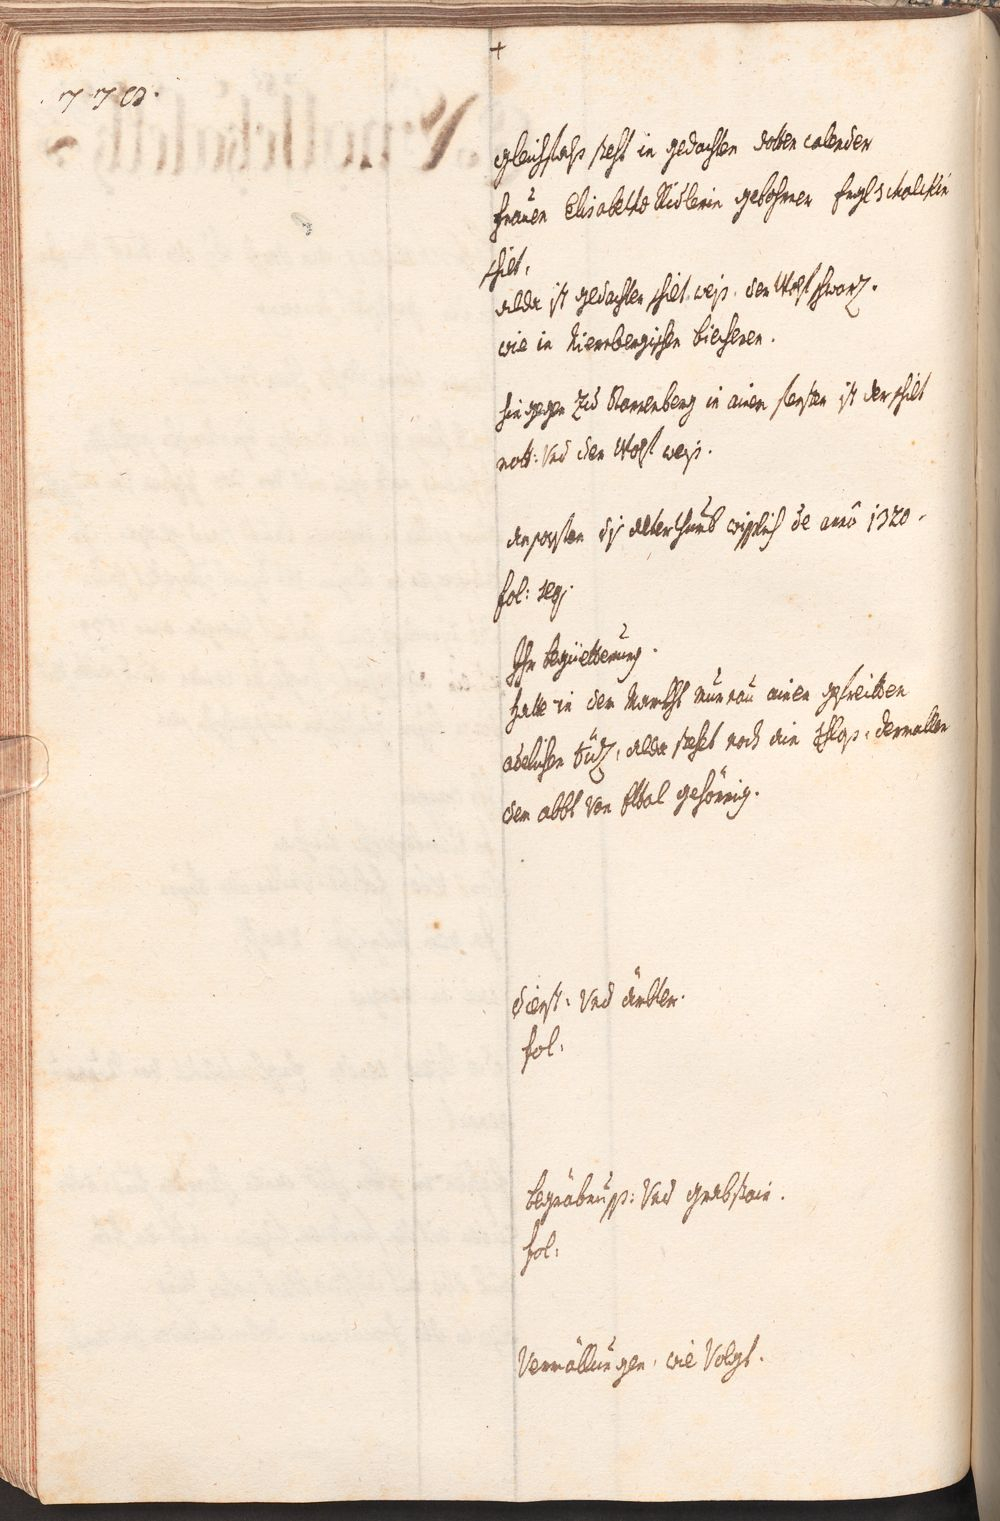 +
778.
gleichfahls steht in gedachten dotten calender
frauen Elisabetha Ridlerin gebohrner Englschalckin
schilt,
alda ist gedachter schilt weis. der Wolf schwarz.
wie in Niernbergischen biecheren.
hin gegen zu Starenberg in ainem fenster ist der schilt
rott: Und der Wolf weis.
ansonsten dis alterthumb wisslich de anno 1320.
fol: seq.
Ihr begüetterung.
hatte in dem Markht Murnau ainen gefreitten
adelichen Siz, alda stehet noch ain schlos, dermallen
dem abbt Von Ettal gehörrig.
dienst: Und ämbter.
fol:
begräbnuss: Und grabstain.
fol:
Vermällungen, wie Volgt.